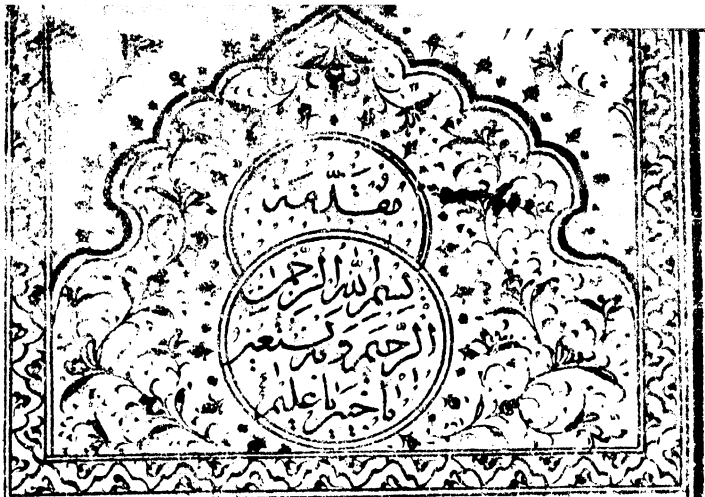 مُقَدِّمَه
بسم الله الرحمن
الرَّحيم وبه نستعين
يا خبير يا عليم